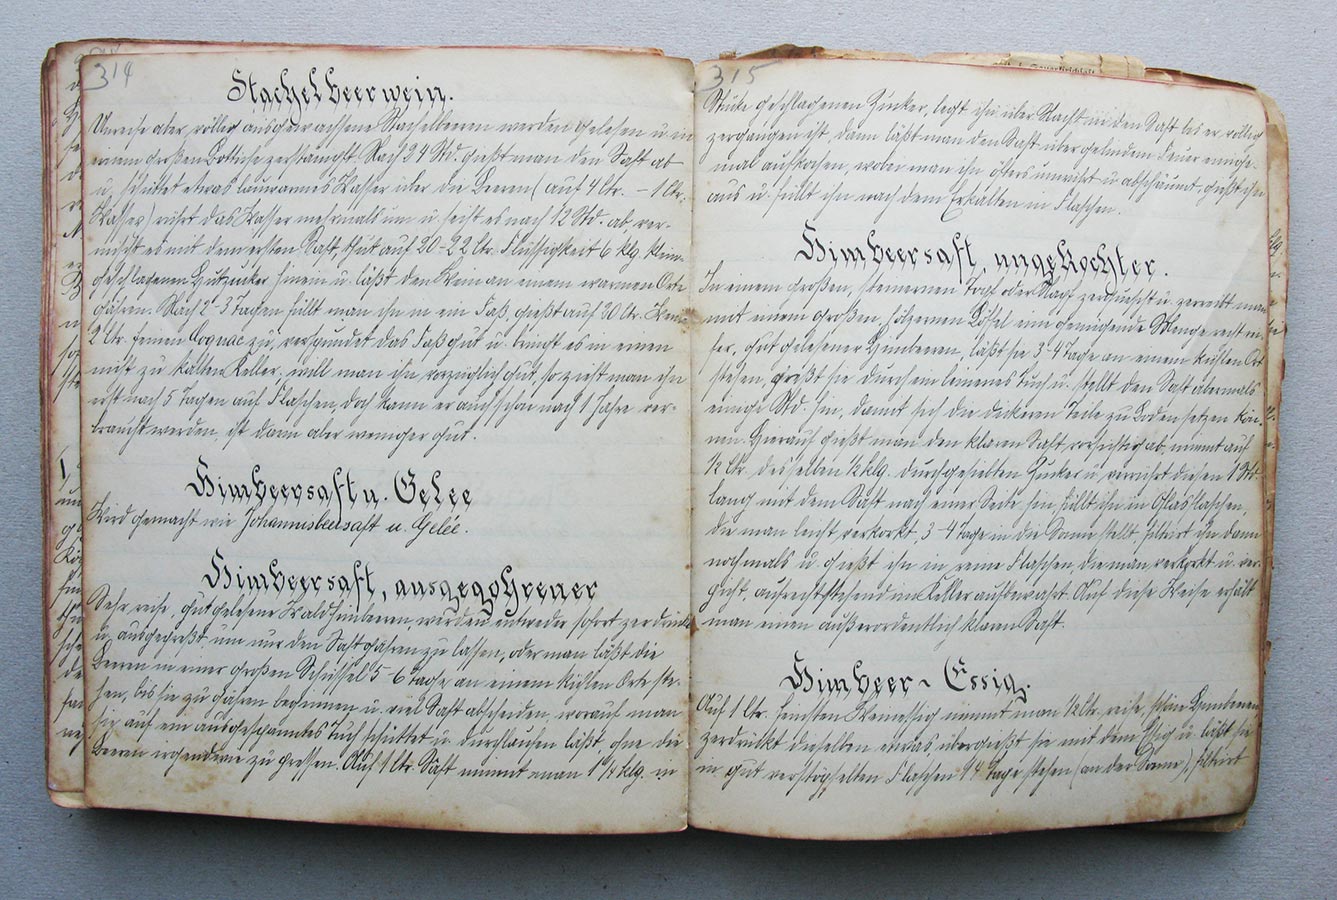 314
Stachelbeerwein.
Unreife aber völlig ausgewachsene Stachelbeeren werden gelesen u. in
einem großen Bottiche zerstampft. Nach 24 Std. gießt man den Saft ab
u. schüttet etwas lauwarmes Wasser über die Beeren (auf 4 Ltr. – 1 Ltr.
Wasser) rührt das Wasser mehrmals um u. seiht es nach 12 Std. ab, ver-
mischt es mit dem ersten Saft, thut auf 20–22 Ltr. Flüssigkeit 6 klg. klein-
geschlagenen Hutzucker hinein u. läßt den Wein an einem warmen Orte
gähren. Nach 2–3 Tagen füllt man ihn in ein Faß, gießt auf 20 Ltr. Wein
2 Ltr. feinen Cognac zu, verspundet das Faß gut u. bringt es in einen
nicht zu kalten Keller. will man ihn vorzüglich gut, so zieht man ihn
erst nach 5 Tagen auf Flaschen, doch kann er auch schon nach 1 Jahre ver-
braucht werden, ist dann aber weniger gut.
Himbeersaft u. Gelee
Wird gemacht wie Johannisbeersaft u. Gelée.
Himbeersaft, ausgegohrener
Sehr reife, gut gelesene Waldhimbeeren werden entweder sofort zerdrückt
u. ausgepreßt um nur den Saft gähren zu lassen, oder man läßt die
Beeren in einer großen Schüssel 5–6 Tage an einem kühlen Orte ste-
hen, bis sie zu gähren beginnen u. viel Saft abscheiden, worauf man
sie auf ein ausgespanntes Tuch schüttet u. durchlaufen läßt, ohne die
Beeren irgendwie zu pressen. Auf 1 Ltr. Saft nimmt man klg. in
315
Stücke geschlagenen Zucker, legt ihn über Nacht in den Saft bis er völlig
zergangen ist, dann läßt man den Saft über gelindem Feuer einige-
mal aufkochen, wobei man ihn öfters umrührt u. abschäumt, gießt ihn
aus u. füllt ihn nach dem Erkalten in Flaschen.
Himbeersaft, ungekochter.
In einem großen, steinernen Topf oder Napf zerquescht u. zerreibt man
mit einem großen hölzernen Löffel eine genügende Menge recht rei-
fer, gut gelesener Himbeeren, läßt sie 3–4 Tage an einem kühlen Ort
stehen, preßt sie durch ein leinenes Tuch u. stellt den Saft abermals
einige Std. hin, damit sich die dickeren Teile zu Boden setzen kön-
nen. Hierauf gießt man den klaren Saft vorsichtig ab, nimmt auf
½ Ltr. desselben ½ klg. durchgesiebten Zucker u. verrührt diesen 1 Std.
lang mit dem Saft nach einer Seite hin, füllt ihn in Glasflaschen,
die man leicht verkorkt, 3–4 Tage in die Sonne stellt, filtrirt ihn dann
nochmals u. gießt ihn in reine Flaschen, die man verkorkt u. ver-
picht aufrechtstehend im Keller aufbewahrt. Auf diese Weise erhält
man einen außerordentlich klaren Saft.
Himbeer-Essig.
Auf 1 Ltr. feinsten Weinessig nimmt man ½ Ltr. reife, schöne Himbeeren
zerdrückt dieselben etwas übergießt sie mit dem Essig u. läßt sie
in gut verstöpselten Flaschen 14 Tage stehen (an der Sonne), filtrirt